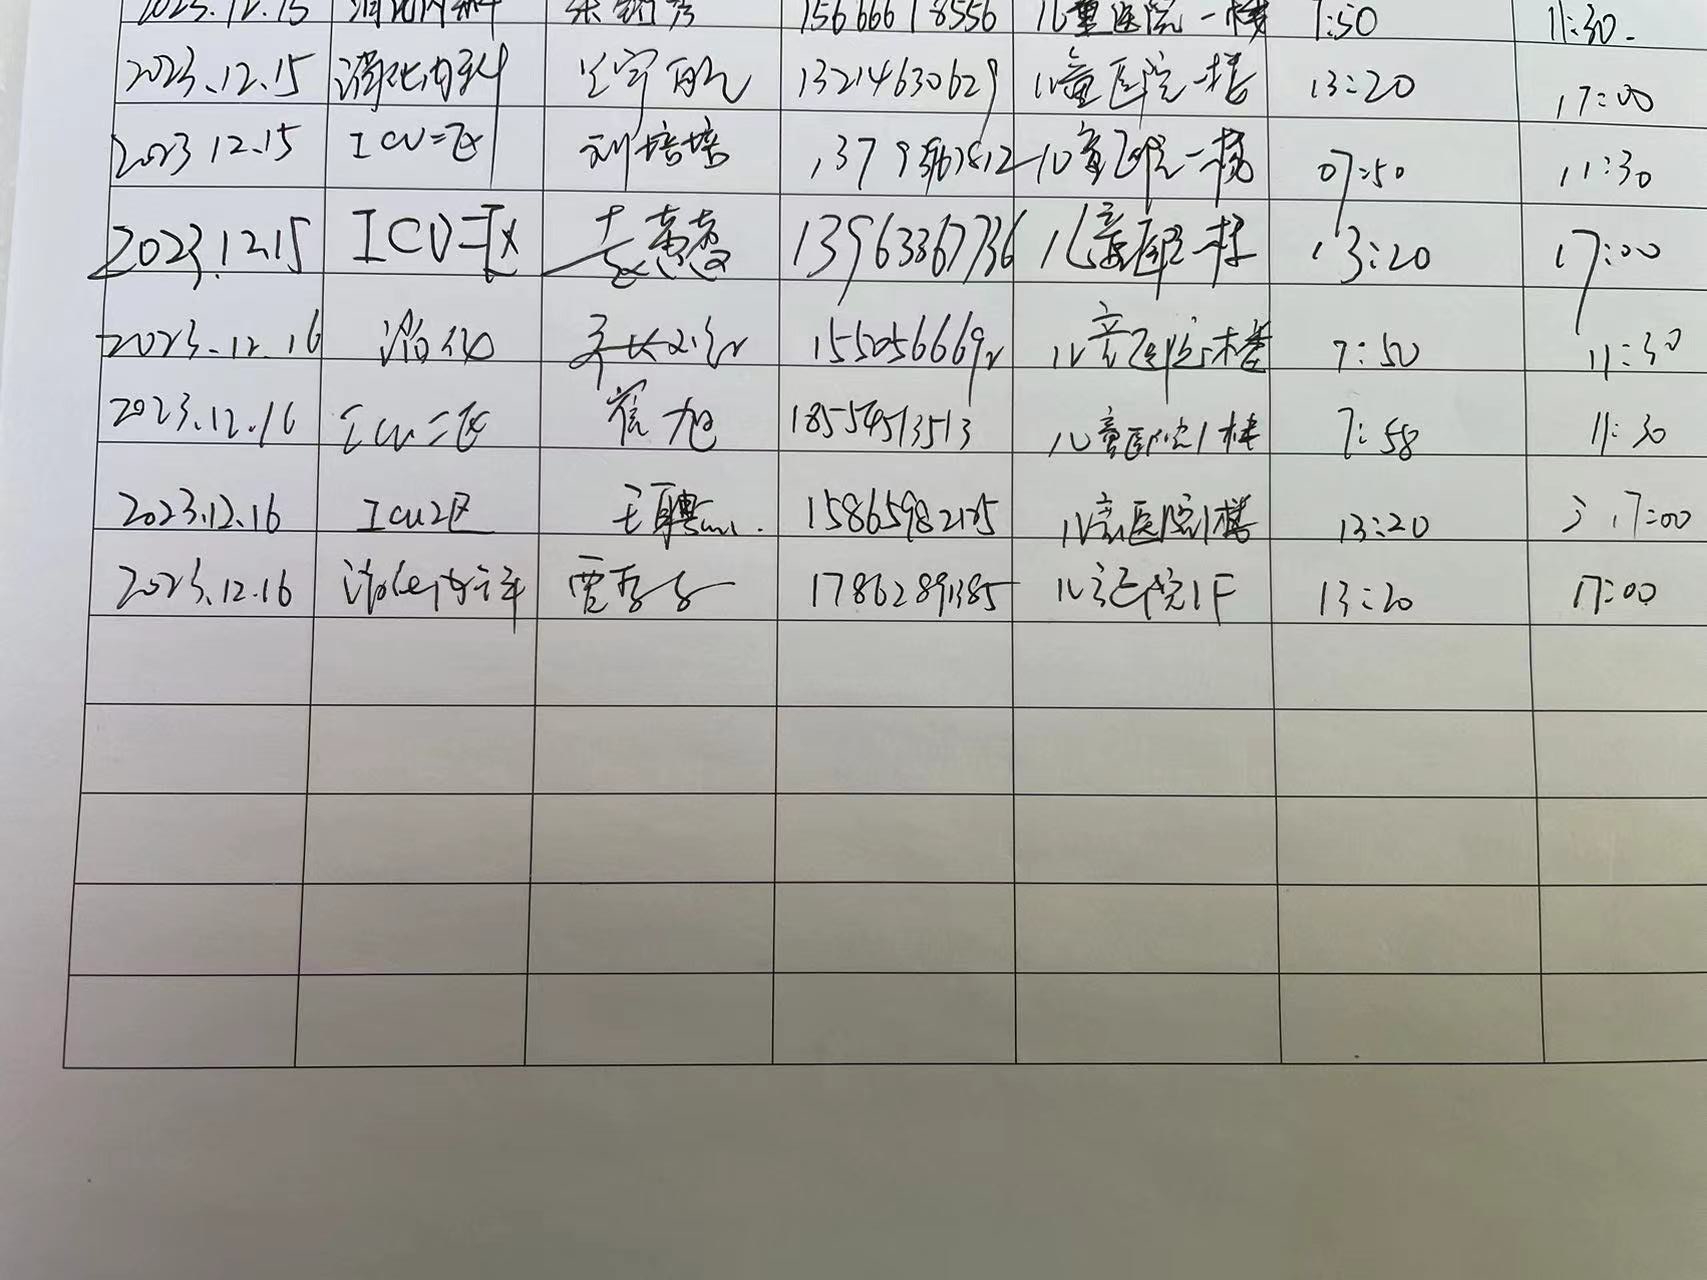 2023.12.15 消化内科 15666618556 儿童医院一楼 7:50 11:30.
2023.12.15 消化内科 13214630629 儿童医院一楼 13:20 17:00
2023 12.15 ICU二区 刘培培 儿童医院一楼 07:50 11:30
2023.12.15 ICU二区 13963367736 儿童医院一楼 13:20 17:00
2023.12.16 消化 儿童医院一楼 7:50 11:30
2023.12.16 ICU二区 崔旭 18554513513 儿童医院1楼 7:58 11:30
2023.12.16 ICU2区 王聘 儿童医院1楼 13:20 17:00
2023.12.16 消化内科 贾 17862891385 儿童医院1F 13:20 17:00